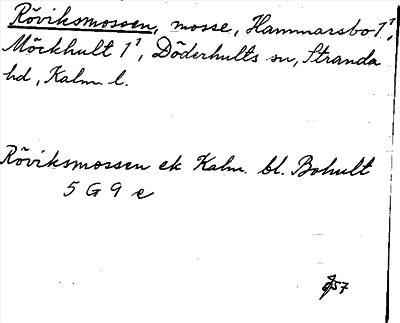 Röviksmossen, mosse, Hammarsbo 1¹,
Möckhult 1¹, Döderhults sn, Stranda
hd, Kalm. l.
Röviksmossen ek Kalm. bl. Bohult
5 G 9 e
57